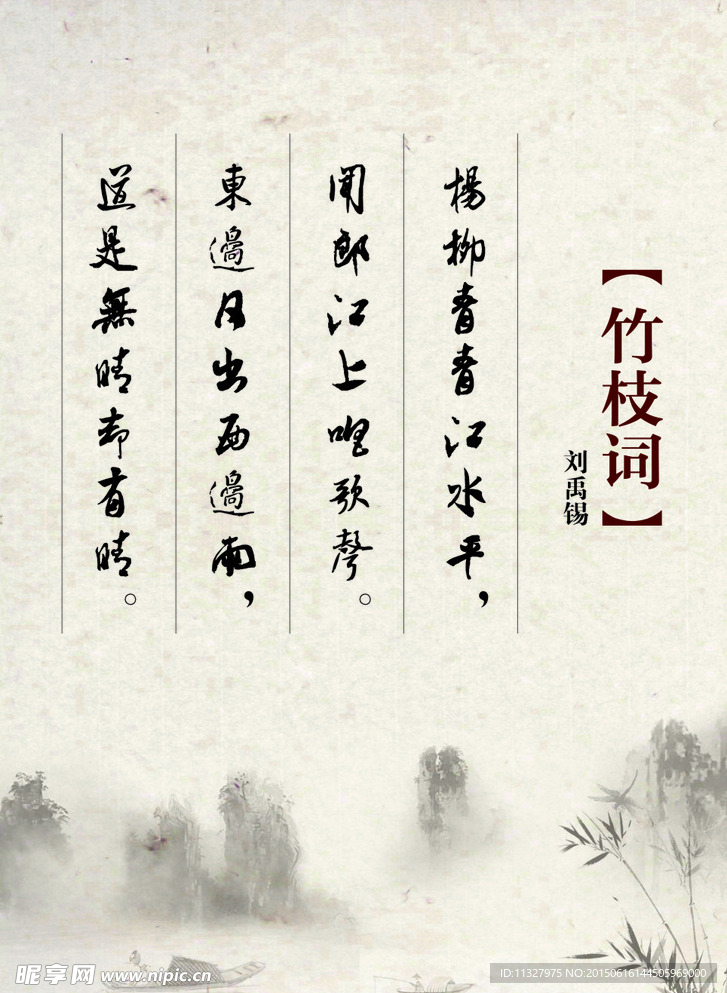 【竹枝词】
刘禹锡
楊柳青青江水平，
聞郎江上唱歌聲。
東邊日出西邊雨，
道是無晴却有晴。
昵享网 www.nipic.cn
ID:11327975 NO:20150616144505969000